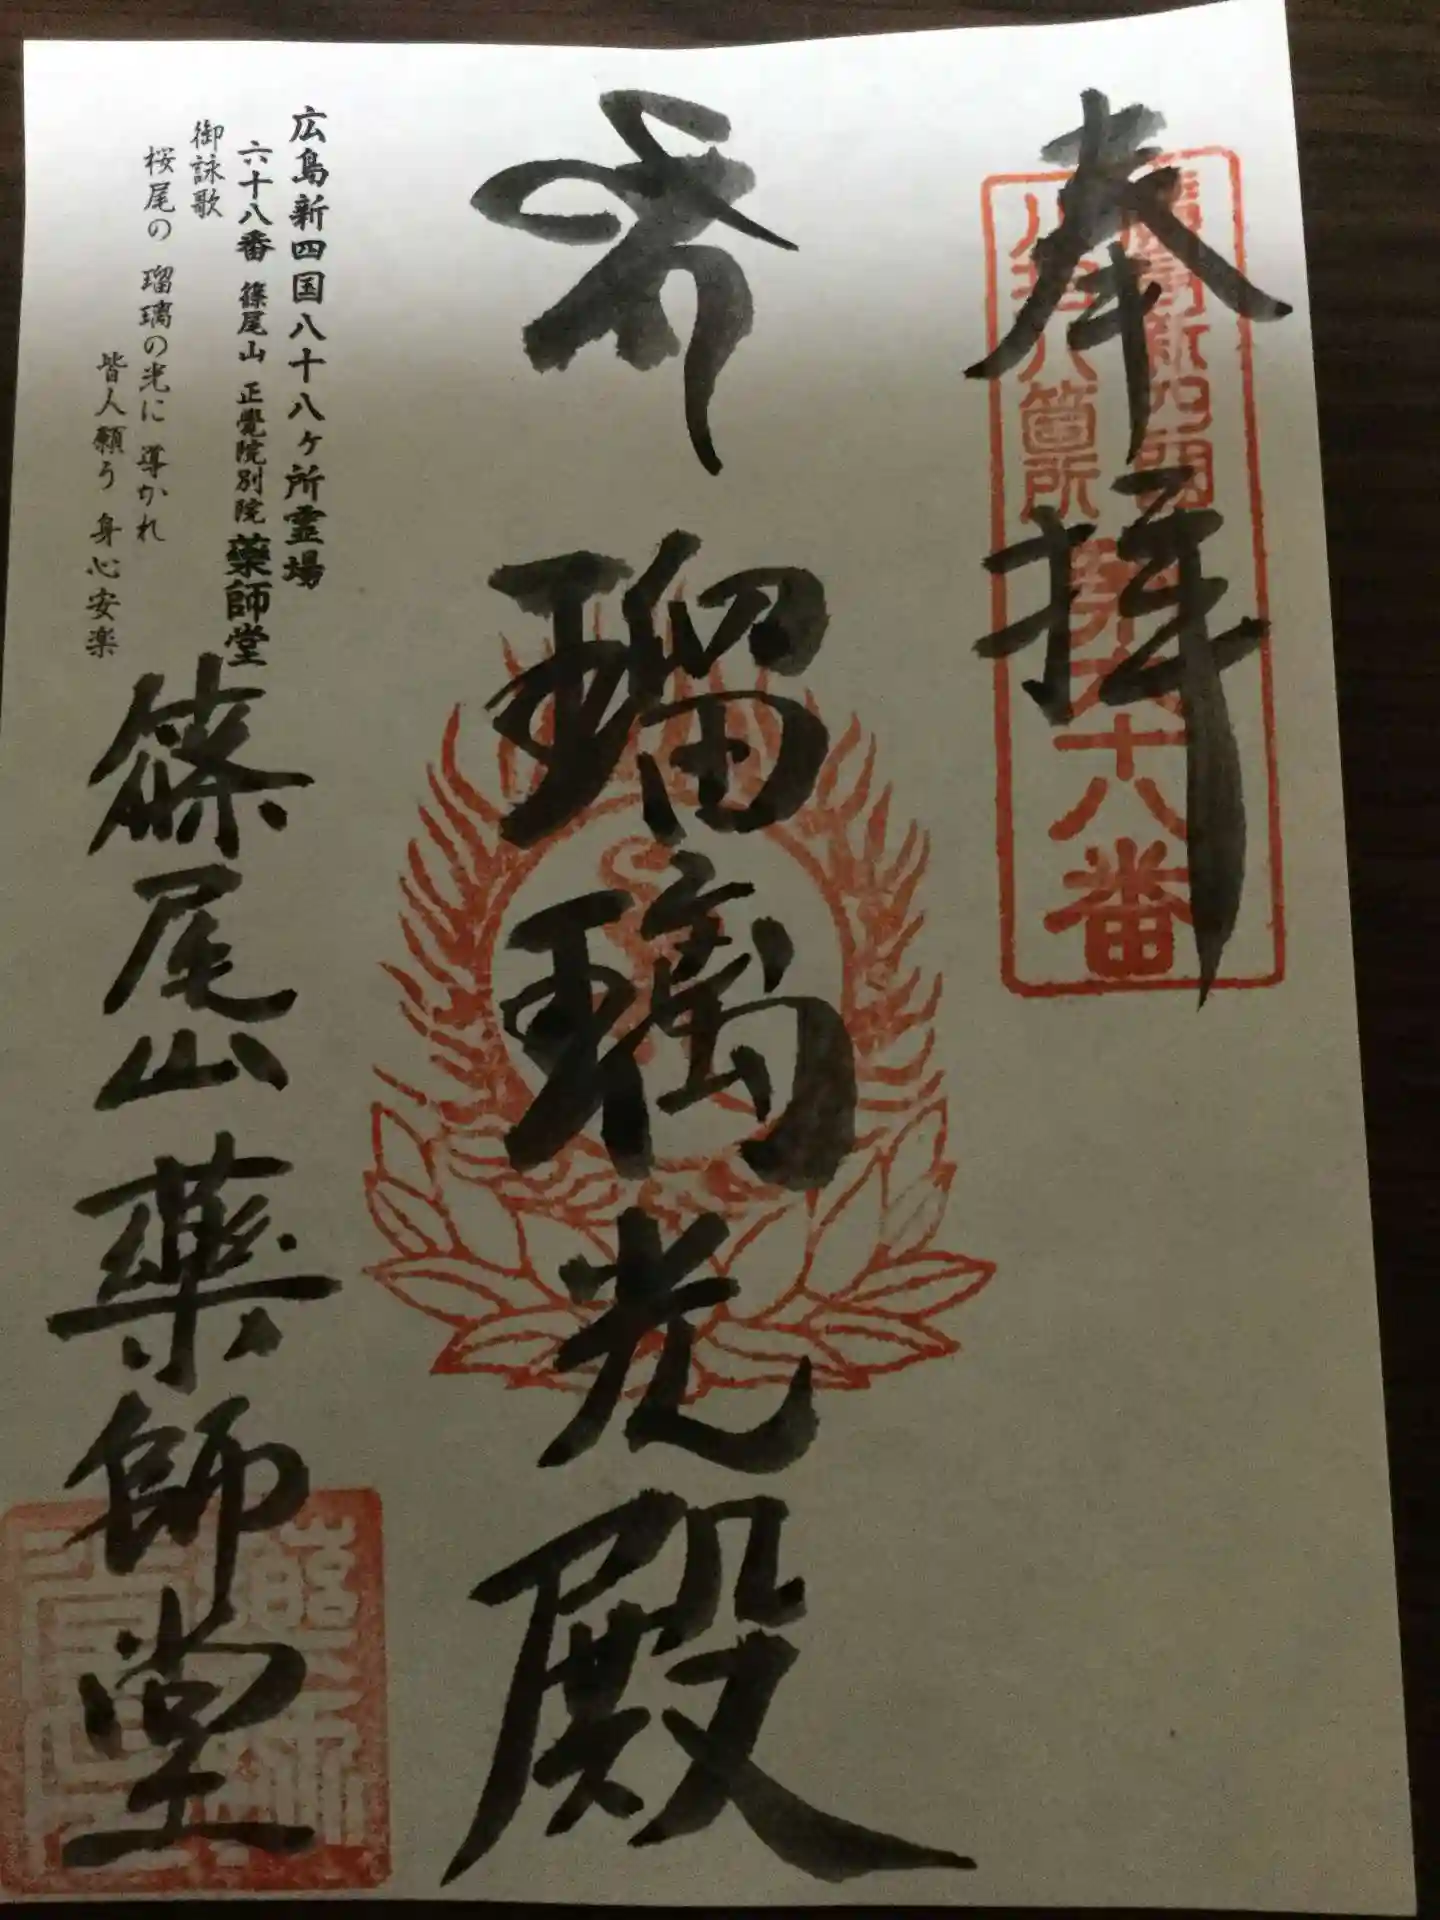 奉拝
廣島新四国
八十八箇所
第六十八番
瑠璃光殿
広島新四国八十八ヶ所霊場
六十八番 篠尾山 正覺院別院 藥師堂
御詠歌
桜尾の 瑠璃の光に 導かれ
皆人願う 身心安楽
篠尾山藥師堂